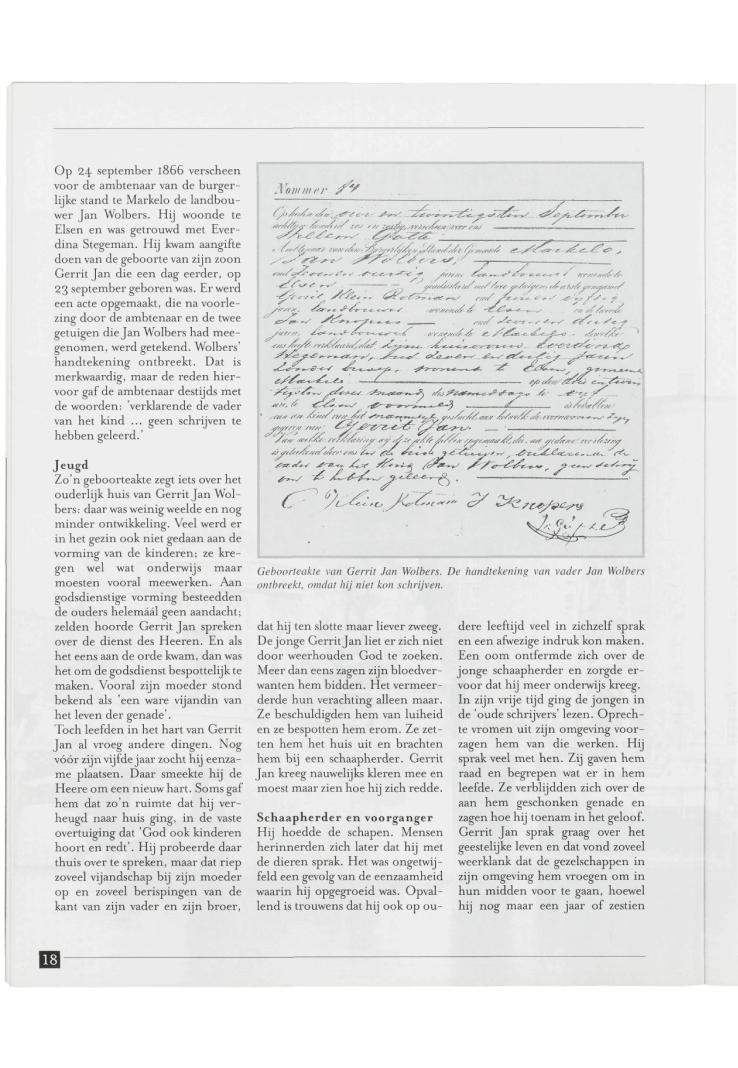 Op 24 september 1866 verscheen
voor de ambtenaar van de burger-
lijke stand te Markelo de landbou-
wer Jan Wolbers. Hij woonde te
Elsen en was getrouwd met Ever-
dina Stegeman. Hij kwam aangifte
doen van de geboorte van zijn zoon
Gerrit Jan die een dag eerder, op
23 september geboren was. Er werd
een acte opgemaakt, die na voorle-
zing door de ambtenaar en de twee
getuigen die Jan Wolbers had mee-
genomen, werd getekend. Wolbers'
handtekening ontbreekt. Dat is
merkwaardig, maar de reden hier-
voor gaf de ambtenaar destijds met
de woorden: 'verklarende de vader
van het kind ... geen schrijven te
hebben geleerd.'
Jeugd
Zo'n geboorteakte zegt iets over het
ouderlijk huis van Gerrit Jan Wol-
bers: daar was weinig weelde en nog
minder ontwikkeling. Veel werd er
in het gezin ook niet gedaan aan de
vorming van de kinderen; ze kre-
gen wel wat onderwijs maar
moesten vooral meewerken. Aan
godsdienstige vorming besteedden
de ouders helemáál geen aandacht;
zelden hoorde Gerrit Jan spreken
over de dienst des Heeren. En als
het eens aan de orde kwam, dan was
het om de godsdienst bespottelijk te
maken. Vooral zijn moeder stond
bekend als 'een ware vijandin van
het leven der genade'.
Toch leefden in het hart van Gerrit
Jan al vroeg andere dingen. Nog
vóór zijn vijfde jaar zocht hij eenza-
me plaatsen. Daar smeekte hij de
Heere om een nieuw hart. Soms gaf
hem dat zo'n ruimte dat hij ver-
heugd naar huis ging, in de vaste
overtuiging dat 'God ook kinderen
hoort en redt'. Hij probeerde daar
thuis over te spreken, maar dat riep
zoveel vijandschap bij zijn moeder
op en zoveel berispingen van de
kant van zijn vader en zijn broer,
Nommer 84
Op heden den vier en twintigsten September
achttien honderd zes en zestig, verscheen voor ons
Willem Gotte
Ambtenaar van den Burgerlijken Stand der Gemeente Markelo,
Jan Wolbers,
oud jaren, landbouwer wonende te
Elsen geadsisteerd met twee getuigen, de eerste genaamd
Gerrit Klein Rotman oud jaren vijftig
jaren, landbouwer wonende te Elsen en de tweede
Jan Knopers oud dertig
jaren, landbouwer wonende te Markelo dewelke
ons heeft verklaard, dat zijne huisvrouw Everdina
Stegeman, oud zeven en dertig jaren
zonder beroep, wonende te Elsen, gemeente
Markelo op den drie en twin
tigsten dezer maand des namiddags te vijf
ure, te Elsen voormeld is bevallen
van een kind van het mannelijk geslacht, aan hetwelk de voornamen zijn
gegeven van Gerrit Jan
Van welke verklaring wij deze akte hebben opgemaakt, die, na gedane voorlezing
is geteekend door ons en de beide getuigen, verklarende de
vader van het kind Jan Wolbers, geen schrij
ven te hebben geleerd.
Klein Rotman J Knopers
Geboorteakte van Gerrit Jan Wolbers. De handtekening van vader Jan Wolbers
ontbreekt, omdat hij niet kon schrijven.
dat hij ten slotte maar liever zweeg.
De jonge Gerrit Jan liet er zich niet
door weerhouden God te zoeken.
Meer dan eens zagen zijn bloedver-
wanten hem bidden. Het vermeer-
derde hun verachting alleen maar.
Ze beschuldigden hem van luiheid
en ze bespotten hem erom. Ze zet-
ten hem het huis uit en brachten
hem bij een schaapherder. Gerrit
Jan kreeg nauwelijks kleren mee en
moest maar zien hoe hij zich redde.
Schaapherder en voorganger
Hij hoedde de schapen. Mensen
herinnerden zich later dat hij met
de dieren sprak. Het was ongetwij-
feld een gevolg van de eenzaamheid
waarin hij opgegroeid was. Opval-
lend is trouwens dat hij ook op ou-
dere leeftijd veel in zichzelf sprak
en een afwezige indruk kon maken.
Een oom ontfermde zich over de
jonge schaapherder en zorgde er-
voor dat hij meer onderwijs kreeg.
In zijn vrije tijd ging de jongen in
de 'oude schrijvers' lezen. Oprech-
te vromen uit zijn omgeving voor-
zagen hem van die werken. Hij
sprak veel met hen. Zij gaven hem
raad en begrepen wat er in hem
leefde. Ze verblijdden zich over de
aan hem geschonken genade en
zagen hoe hij toenam in het geloof.
Gerrit Jan sprak graag over het
geestelijke leven en dat vond zoveel
weerklank dat de gezelschappen in
zijn omgeving hem vroegen om in
hun midden voor te gaan, hoewel
hij nog maar een jaar of zestien
18